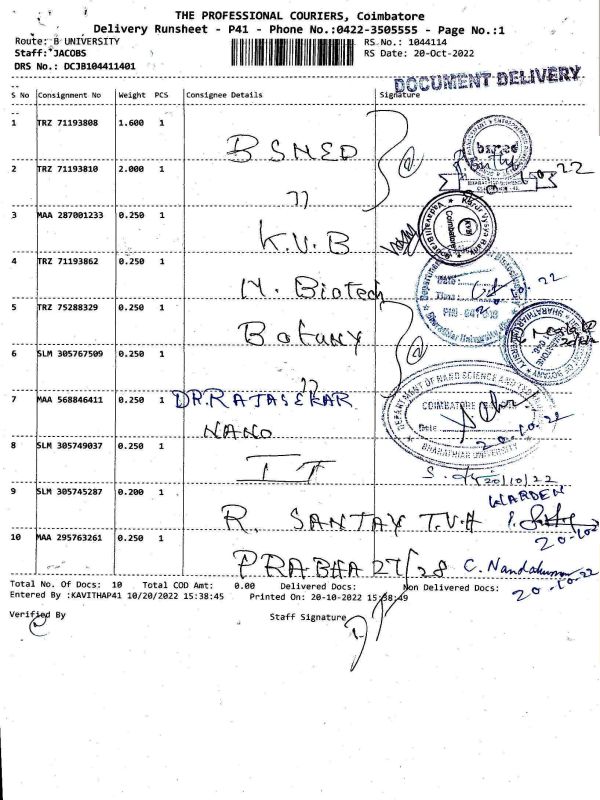 THE PROFESSIONAL COURIERS, Coimbatore
Delivery Runsheet - P41 - Phone No.:0422-3505555 - Page No.:1
Route: B UNIVERSITY
RS No.: 1044114
Staff: JACOBS
RS Date: 20-Oct-2022
DRS No.: DCJB104411401
DOCUMENT DELIVERY
S No Consignment No Weight PCS Consignee Details Signature
1 TRZ 71193808 1.600 1
BSMED
2 TRZ 71193810 2.000 1
"
3 MAA 287001233 0.250 1
K.V.B
4 TRZ 71193862 0.250 1
M. Biotech
5 TRZ 75288329 0.250 1
Botany
6 SLM 305767509 0.250 1
"
7 MAA 568846411 0.250 1 DR.RAJASEKAR
NANO
8 SLM 305749037 0.250 1
IT
20/10/22
9 SLM 305745287 0.200 1
WARDEN
R. SANJAY T.V.H
20-10
10 MAA 295763261 0.250 1
PRABHA 27/28 C. Nandakumar
20-10-22
bsmed
Karur Vysya Bank
KVB
Coimbatore
Date :
Time :
Bharathiar University
DEPARTMENT OF NANO SCIENCE AND
COIMBATORE
Date
20-10-22
BHARATHIAR UNIVERSITY
Total No. Of Docs: 10 Total COD Amt: 0.00 Delivered Docs: Non Delivered Docs:
Entered By :KAVITHAP41 10/20/2022 15:38:45 Printed On: 20-10-2022 15:38:49
Verified By
Staff Signature